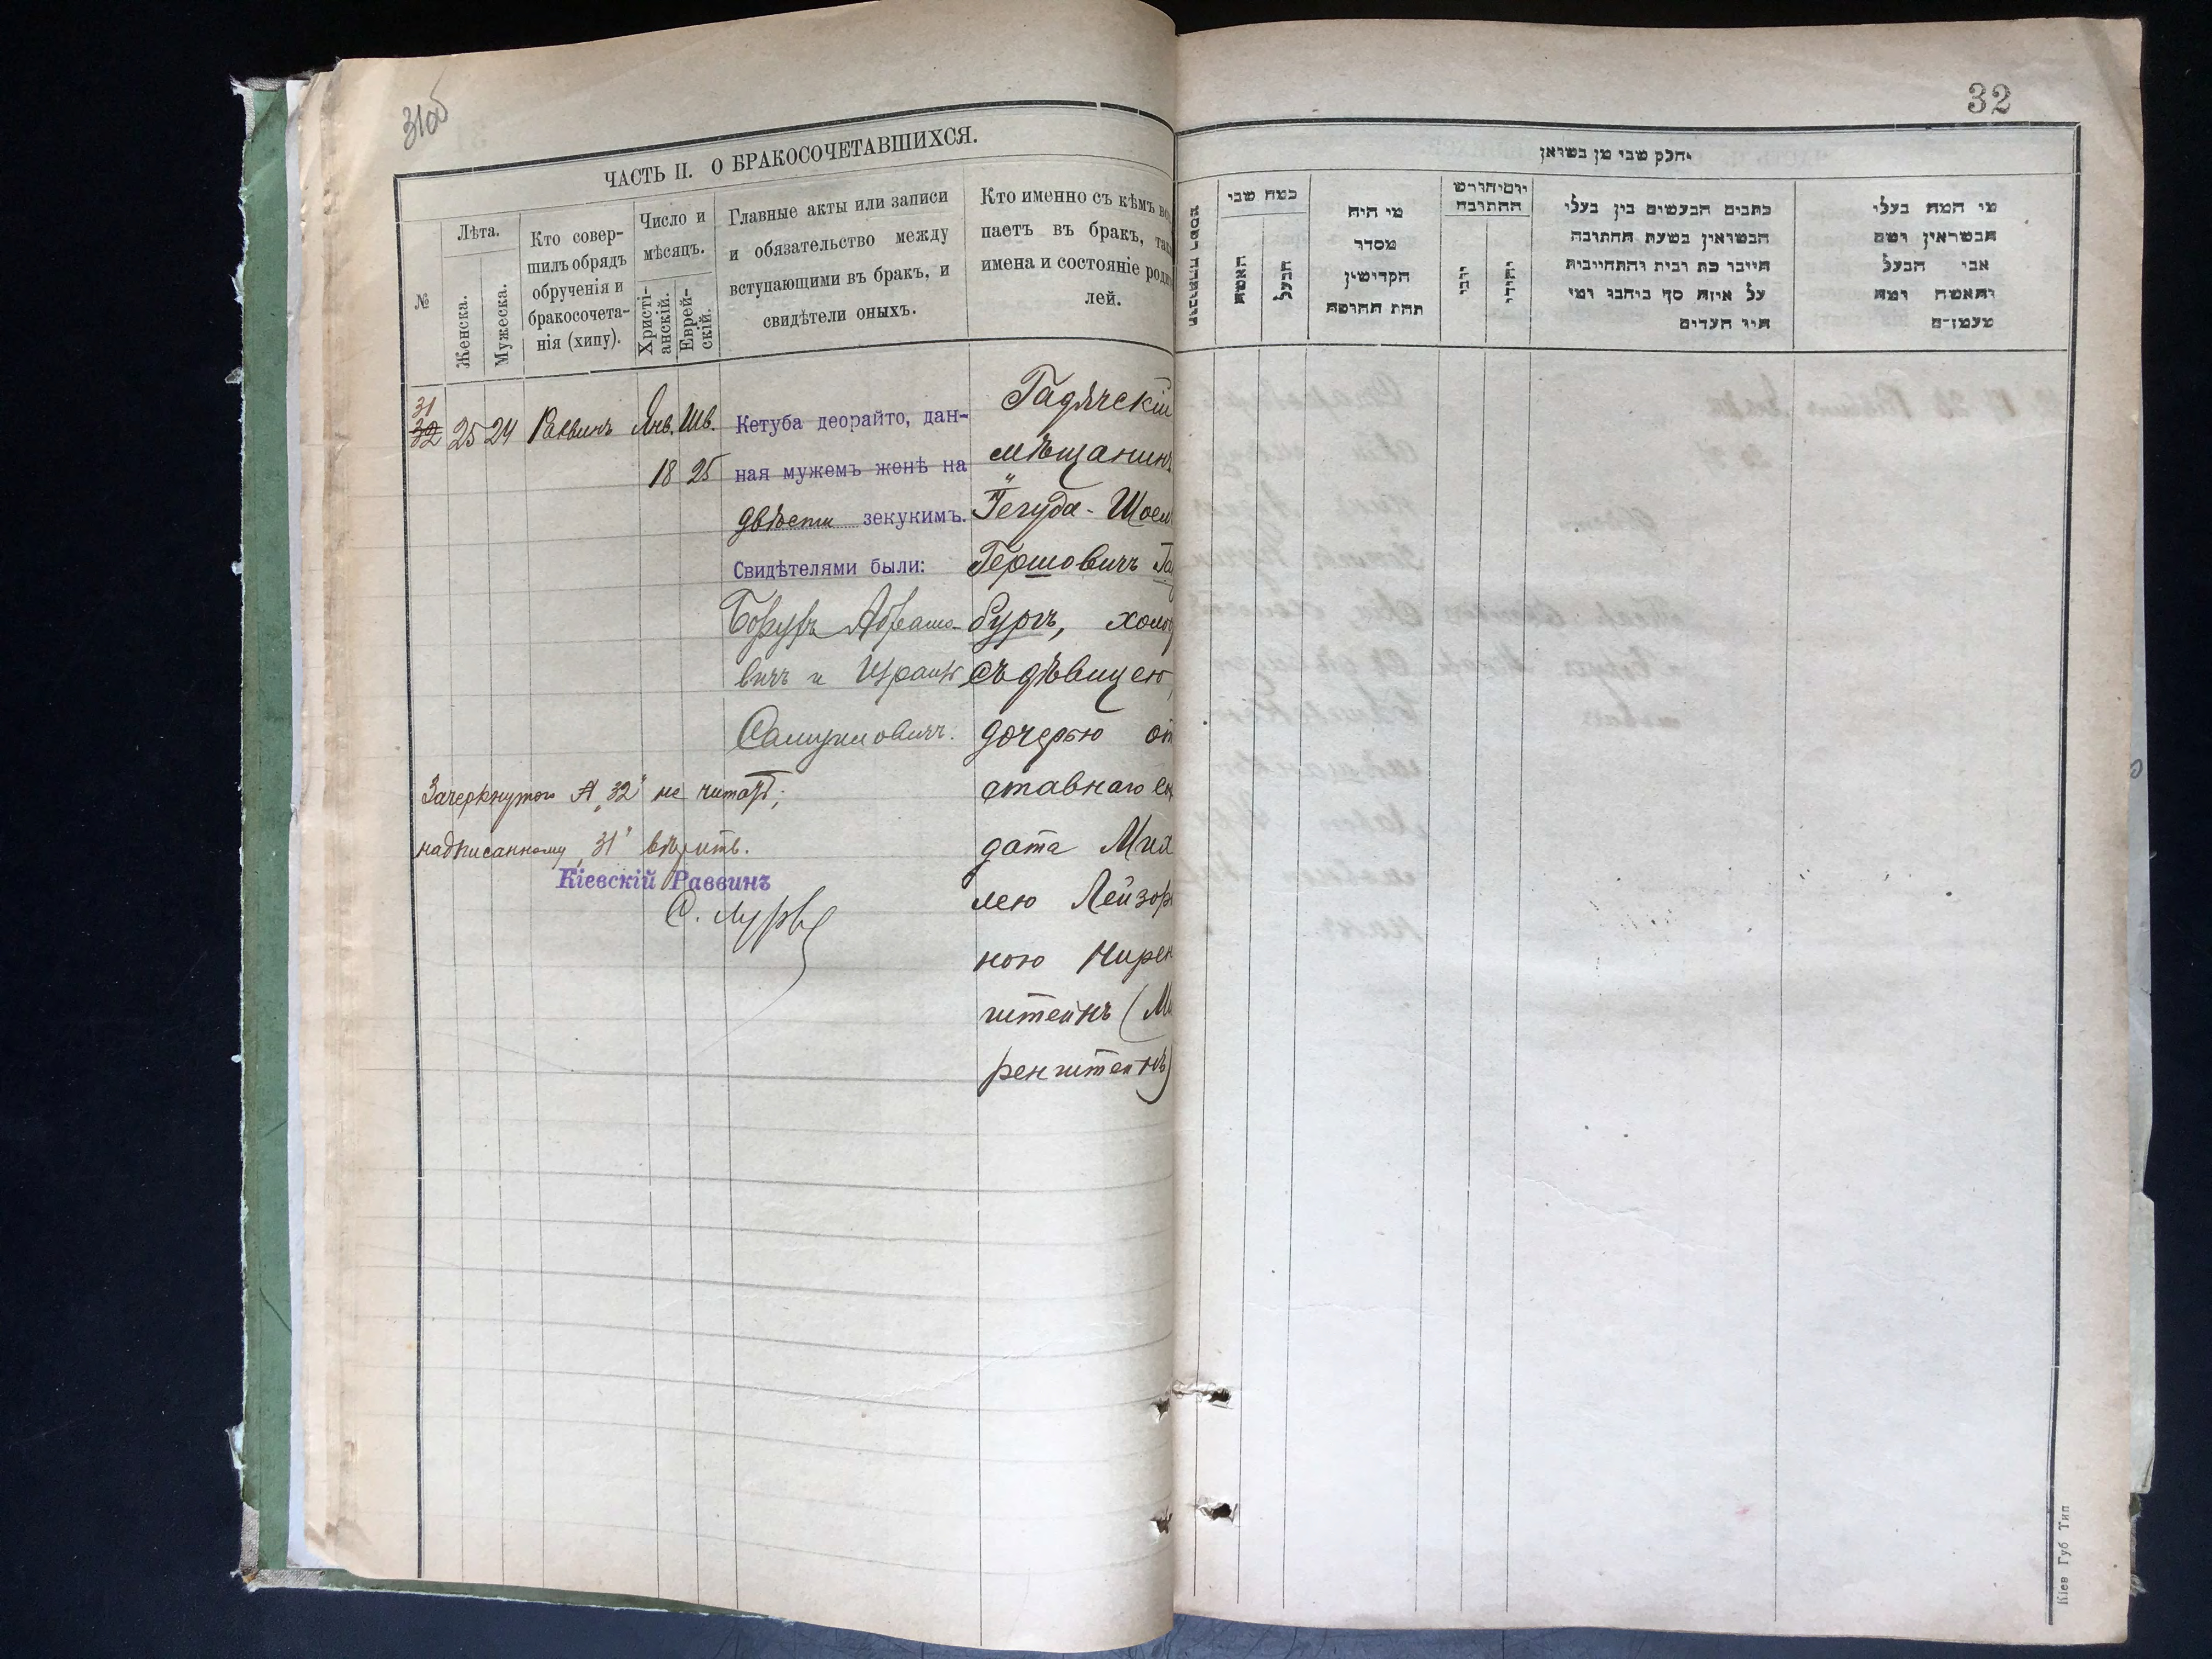 31об
ЧАСТЬ II. О БРАКОСОЧЕТАВШИХСЯ.
№
Лѣта.
Женска.
Мужеска.
Кто совер-
шилъ обрядъ
обрученія и
бракосочета-
нія (хипу).
Число и
мѣсяцъ.
Христі-
анскій.
Еврей-
скій.
Главные акты или записи
и обязательство между
вступающими въ бракъ, и
свидѣтели оныхъ.
Кто именно съ кѣмъ вс
паетъ въ бракъ, так
имена и состояніе роди
лей.
31
32 25 24 Раввинъ Янв. Шв.
18 25
Кетуба деорайто, дан-
ная мужемъ женѣ на
двѣсти зекукимъ.
Свидѣтелями были:
Борухъ Абрамо-
вичъ и Израиль
Самуиловичъ.
Гадячскій
мѣщанинъ
Іегуда-Шоел
Гершовичъ Га
бургъ, холос
съ дѣвицею,
дочерью от
ставнаго сол
дата Миха
лею Лейзор
ною Нирен
штейнъ (Ми
ренштейнъ)
Зачеркнутого № "32" не читать;
надписанному "31" вѣрить.
Кіевскій Раввинъ
С. Лурье
32
יחלק שבי מן בשואן
כמה שבי
האשה
הבעל
מי היה
מסדר
הקדישין
תחת החופה
יומיחודש
ההתובה
יהודי
כתבים הבעשים בין בעלי
הבשואין בשעת החתובה
חייבו כת ובית והתחייבות
על איזה סך ביהבו ומי
היו העדים
מי המה בעלי
הבשואין ושם
אבי הבעל
והאשה ומה
מעמדם
Кіев Губ Тип